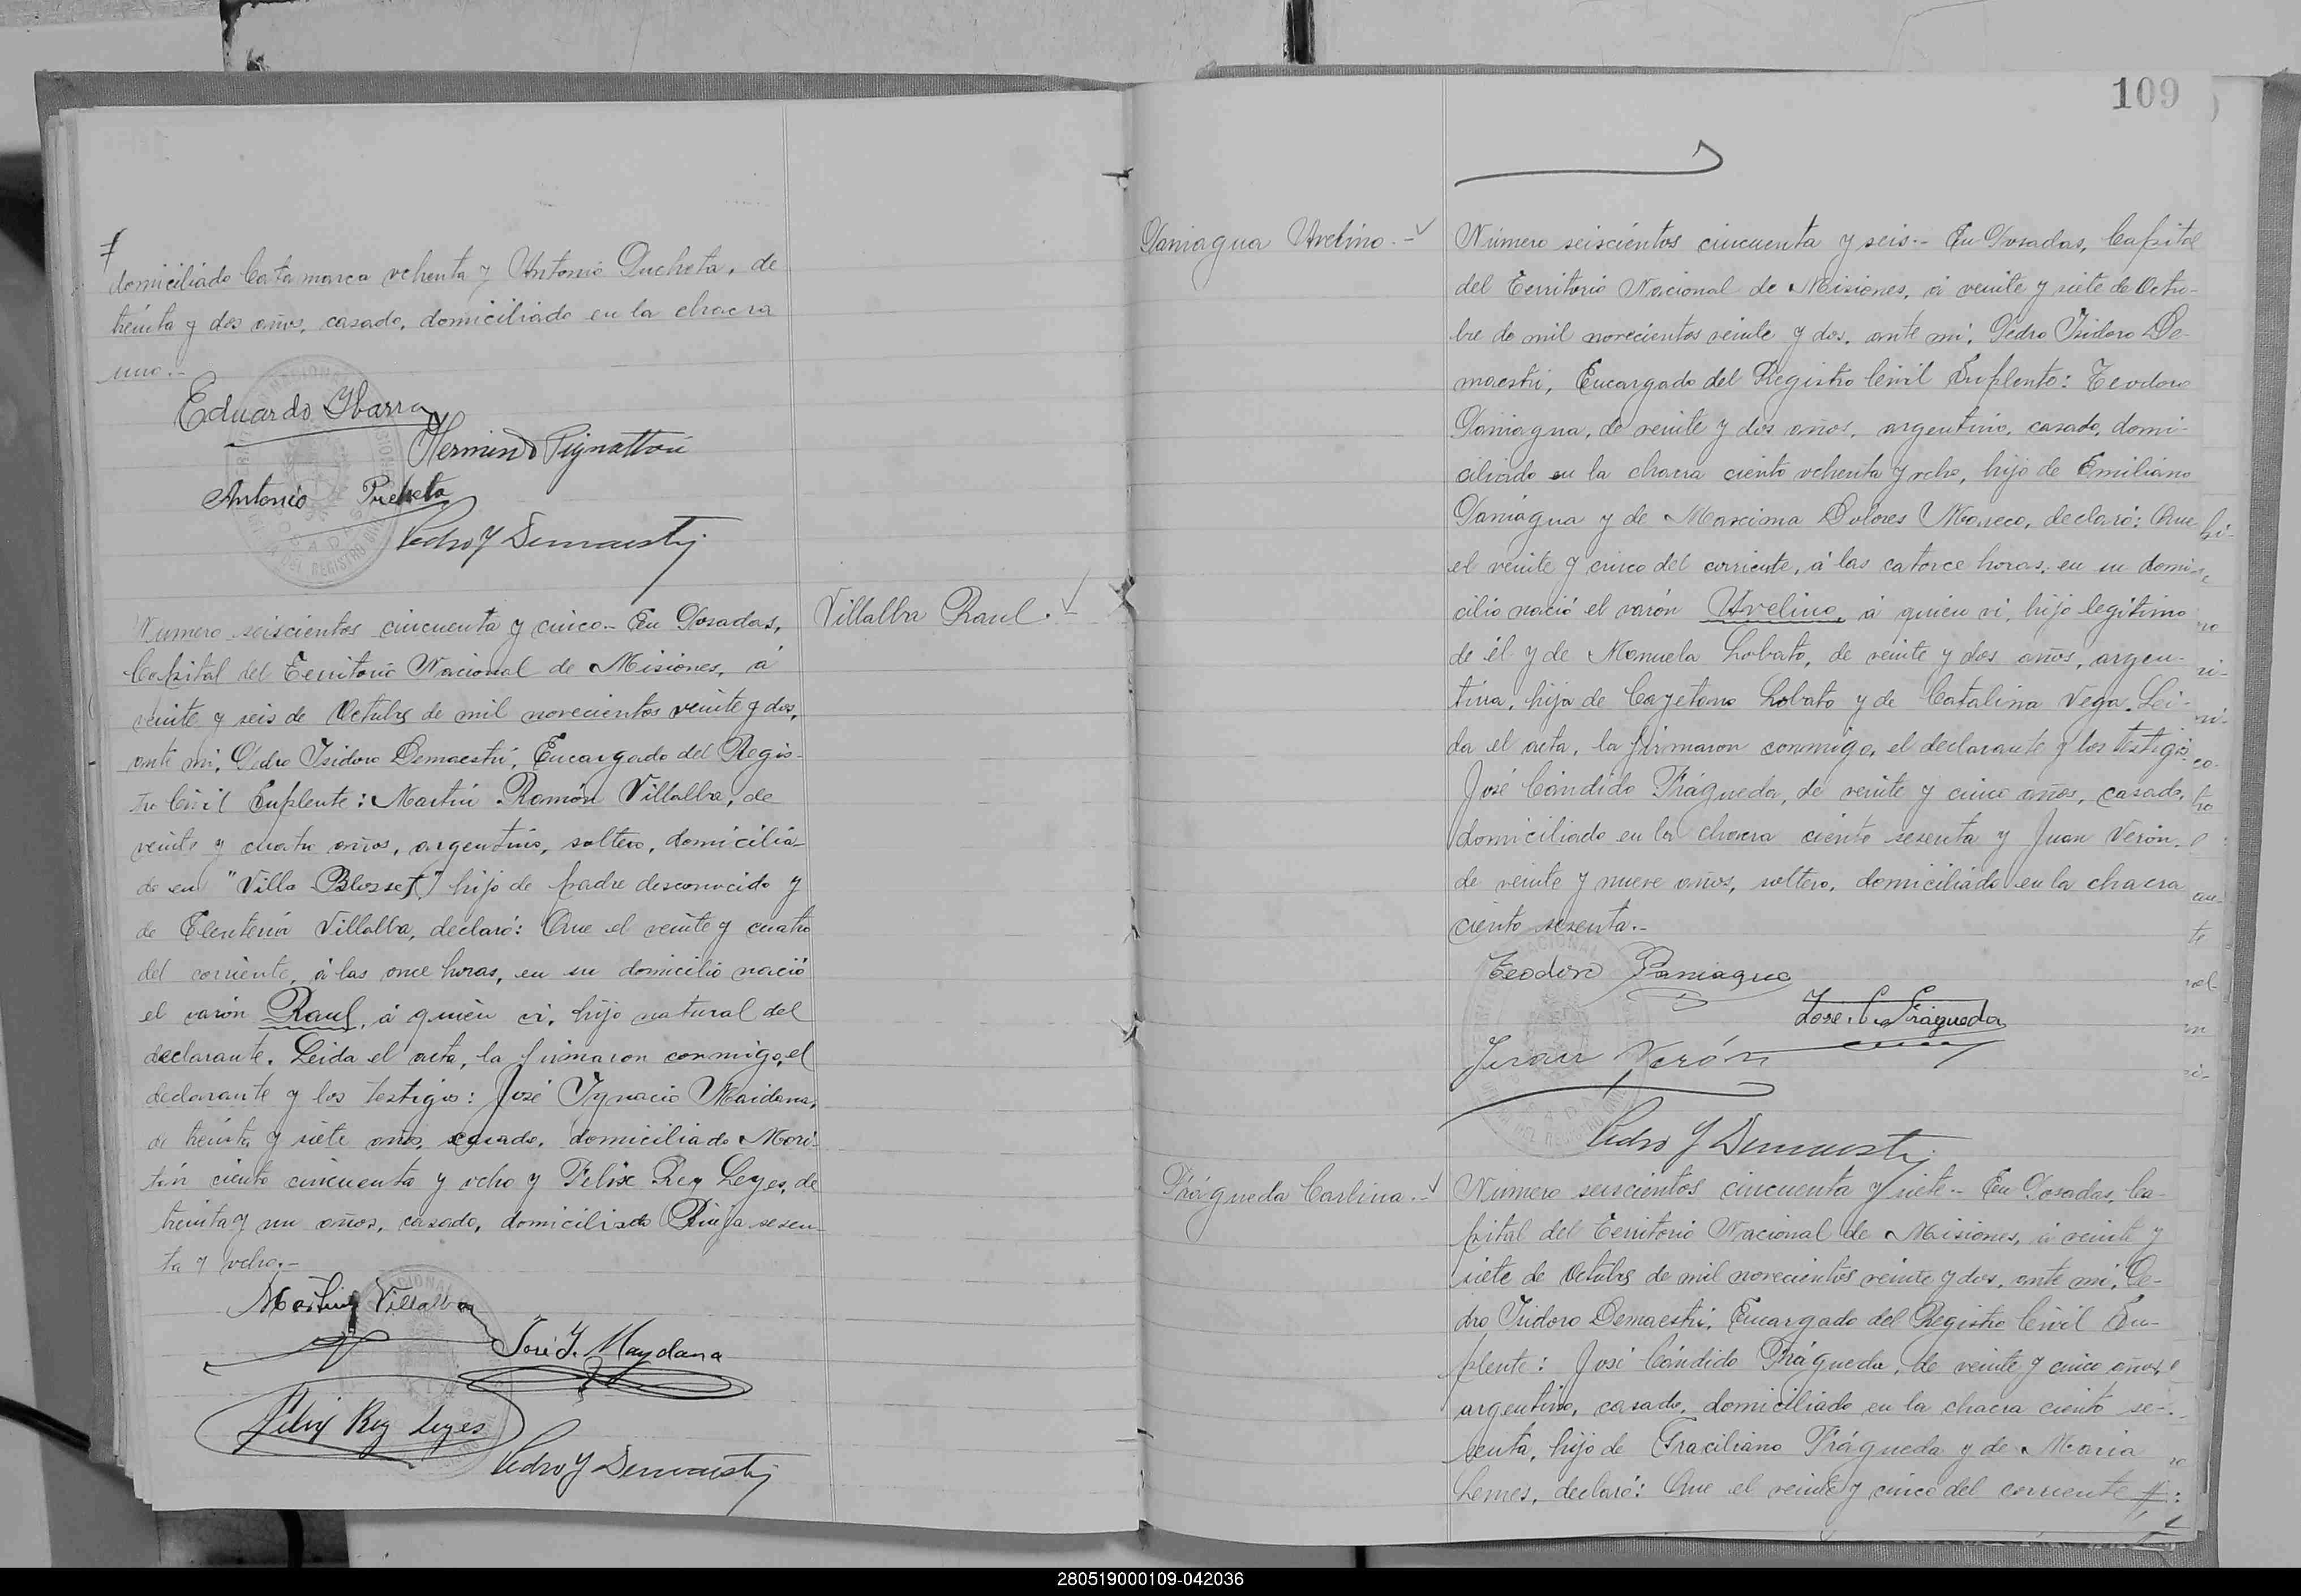 domiciliado Catamarca ochenta y Antonio Pucheta, de
treinta y dos años, casado, domiciliado en la chacra
uno.-
Eduardo Ybarra
Hermindo Pignattari
Antonio Pucheta
Pedro Y Demaestri
Número seiscientos cincuenta y cinco.- En Posadas,
Capital del Territorio Nacional de Misiones, á
veinte y seis de Octubre de mil novecientos veinte y dos,
ante mi, Pedro Isidoro Demaestri, Encargado del Regis-
tro Civil Suplente: Martin Ramón Villalba, de
veinte y cuatro años, argentino, soltero, domicilia-
do en "Villa Blosset", hijo de padre desconocido y
de Eleuteria Villalba, declaró: Que el veinte y cuatro
del corriente, á las once horas, en su domicilio nació
el varón Raul, á quien vi, hijo natural del
declarante. Leida el acta, la firmaron conmigo, el
declarante y los testigos: José Ygnacio Maidana,
de treinta y siete años, casado, domiciliado Mori-
tán ciento cincuenta y ocho y Felix Rey Leyes, de
treinta y un años, casado, domiciliado Rioja sesen-
ta y ocho.-
Martin Villalba
José Y. Maydana
Felix Rey Leyes
Pedro Y Demaestri
Villalba Raul.-
109
Paniagua Avelino.-
Número seiscientos cincuenta y seis.- En Posadas, Capital
del Territorio Nacional de Misiones, á veinte y siete de Octu-
bre de mil novecientos veinte y dos, ante mi, Pedro Isidoro De-
maestri, Encargado del Registro Civil Suplente: Teodoro
Paniagua, de veinte y dos años, argentino, casado, domi-
ciliado en la chacra ciento ochenta y ocho, hijo de Emiliano
Paniagua y de Marcima Dolores Moreco, declaró: Que
el veinte y cinco del corriente, á las catorce horas, en su domi-
cilio nació el varón Avelino, á quien vi, hijo legítimo
de él y de Manuela Lobato, de veinte y dos años, argen-
tina, hija de Cayetano Lobato y de Catalina Vega. Lei-
da el acta, la firmaron conmigo, el declarante y los testigos
José Cándido Frágueda, de veinte y cinco años, casado,
domiciliado en la chacra ciento sesenta y Juan Verón,
de veinte y nueve años, soltero, domiciliado en la chacra
ciento sesenta.-
Teodoro Paniagua
José C. Fragueda
Juan Verón
Pedro Y Demaestri
Frágueda Carlina.-
Número seiscientos cincuenta y siete.- En Posadas, Ca-
pital del Territorio Nacional de Misiones, á veinte y
siete de Octubre de mil novecientos veinte y dos, ante mi, Pe-
dro Isidoro Demaestri, Encargado del Registro Civil Su-
plente: José Cándido Frágueda, de veinte y cinco años,
argentino, casado, domiciliado en la chacra ciento se-
senta, hijo de Graciliano Frágueda y de Maria
Lemes, declaró: Que el veinte y cinco del corriente
280519000109-042036